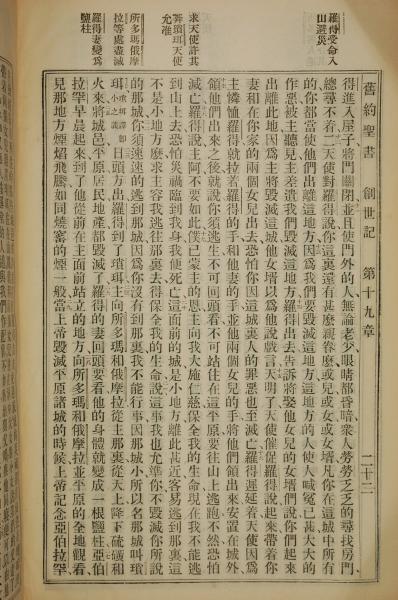 舊約聖書 創世記 第十九章 二十二
羅得受命入
山避災
求天使許其
奔瑣珥天使
允准
所多瑪俄摩
拉等處盡滅
羅得妻變爲
鹽柱
得進入屋子、將門關閉、並且使門外的人、無論老少、眼睛都昏暗、衆人勞勞乏乏的尋找房門、
總尋不着、二天使對羅得說、你這裏還有甚麽親眷麽、或兒、或女、或女壻、凡你在這城中所有
的、你都當使他們出離這地方、因爲我們要毀滅這地方、這地方的人、使人喊冤已甚、大大的
作惡、被主聽見、主差遣我們毀滅這地方、羅得出去、告訴將娶他女兒的女壻們說、你們起來
出離此地、因爲主將毀滅這城、他女壻以爲他說戲言、天明了、天使催促羅得說、起來、帶着你
妻、和在你家的兩個女兒出去、恐怕你因這城裏人的罪惡也至滅亡、羅得遲延着、天使因爲
主憐恤羅得、就拉着羅得的手、和他妻的手、並他兩個女兒的手、將他們領出來、安置在城外、
領他們出來之後、就說、你須逃生、不可回頭看、不可站住在這平原、要往山上逃跑、不然恐怕
滅亡、羅得說、主阿、不要如此、僕已蒙主的恩、主向我大施仁慈、保全我的生命、現在我不能逃
到山上去、恐怕災禍臨到我身、我便死亡、這面前的城、是小地方、離此甚近、容易逃到那裏、這
不是小地方麽、求主容我逃往那裏去、得保全我的生命、說、這事我也允準你、不毀滅你所說
的那城、你須速速的逃到那城、因爲你沒有到那裏、我不能行事、因那城小、所以名那城叫瑣
珥、瑣珥譯卽小之義日頭方出、羅得到了瑣珥、主向所多瑪和俄摩拉、從主那裏從天上降下硫磺和
火來、將城邑、平原、居民、地產、都毀滅了、羅得的妻、回頭要看、他的身體、就變成一根鹽柱、亞伯
拉罕早晨起來、到了他從前在主面前站立的地方、向所多瑪和俄摩拉並平原的全地觀看、
見那地方煙焰飛騰、如同燒窰的煙一般、當上帝毀滅平原諸城的時候、上帝記念亞伯拉罕、